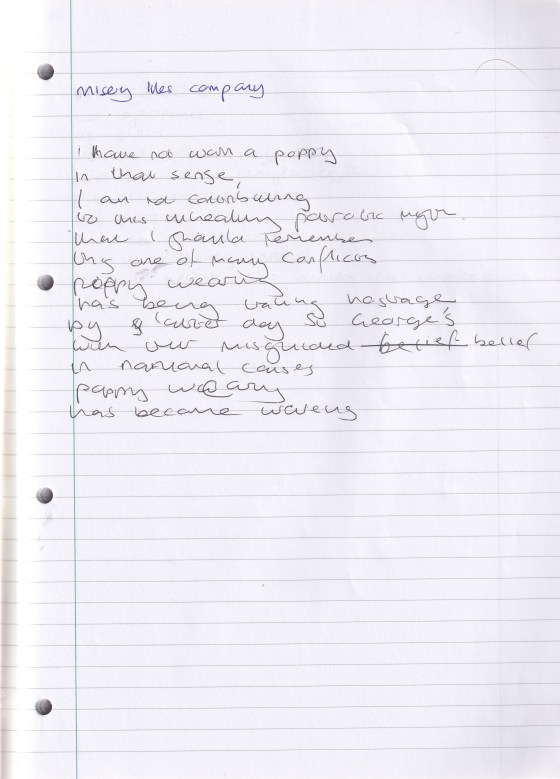 misery likes company
I have not worn a poppy
in that sense,
I am not contributing
to this unhealthy patriotic
that I should remember
one of many conflicts
poppy wearing
has being taking hostage
by day St George's
with our misguided belief belief
in national causes
poppy wearing
has became